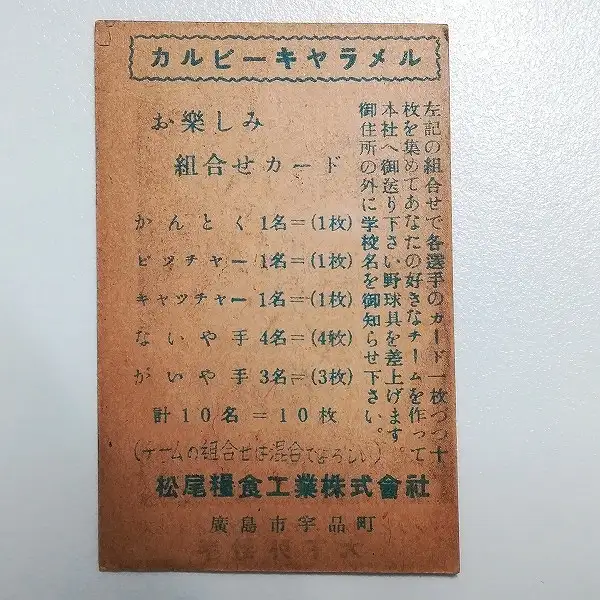 カルビーキャラメル
お樂しみ
組合せカード
かんとく 1名=(1枚)
ピッチャー 1名=(1枚)
キャッチャー 1名=(1枚)
ないや手 4名=(4枚)
がいや手 3名=(3枚)
計10名=10枚
左記の組合せで各選手のカード一枚づつ十
枚を集めてあなたの好きなチームを作って
本社へ御送り下さい野球具を差上げます。
御住所の外に学校名を御知らせ下さい。
(チームの組合せは混合でよろしい)
松尾糧食工業株式會社
廣島市宇品町